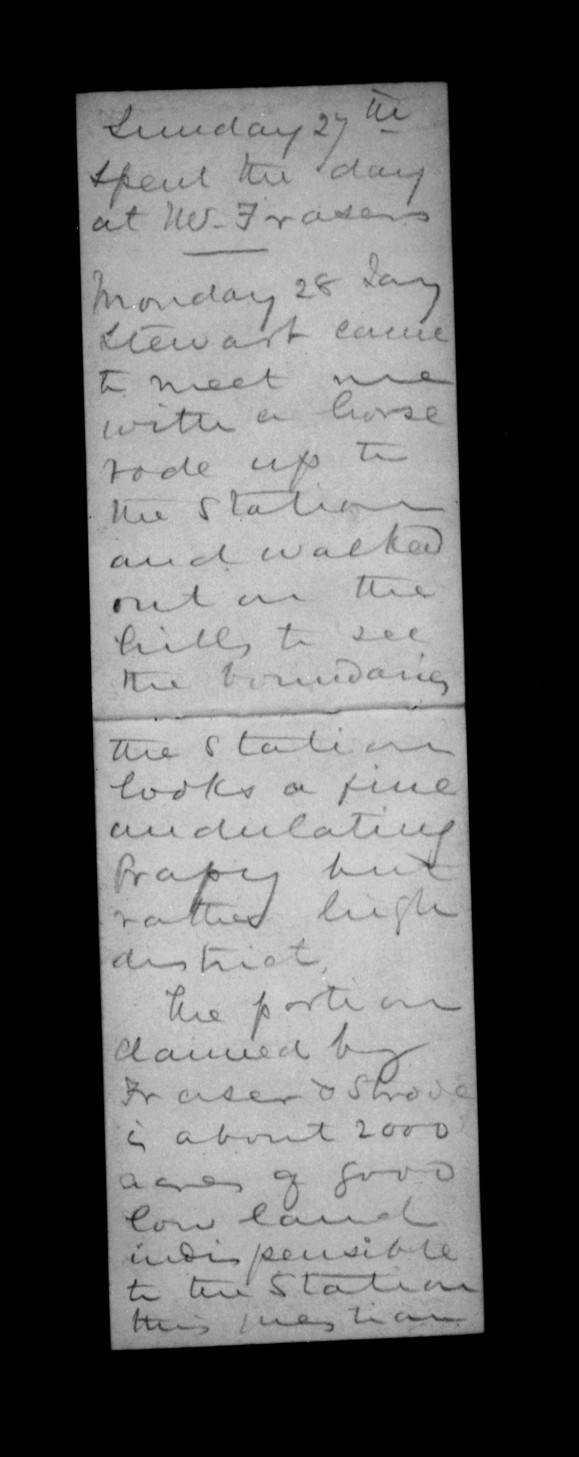 Sunday 27th
Spent the day
at Mr. Frasers
Monday 28 Jany
Stewart came
to meet me
with a horse
rode up to
the Station
and walked
out on the
hills to see
the boundaries
the Station
looks a fine
undulating
grassy but
rather high
district.
The portion
claimed by
Fraser & Shrove
is about 2000
acres of good
low land
indispensible
to the Station
this question